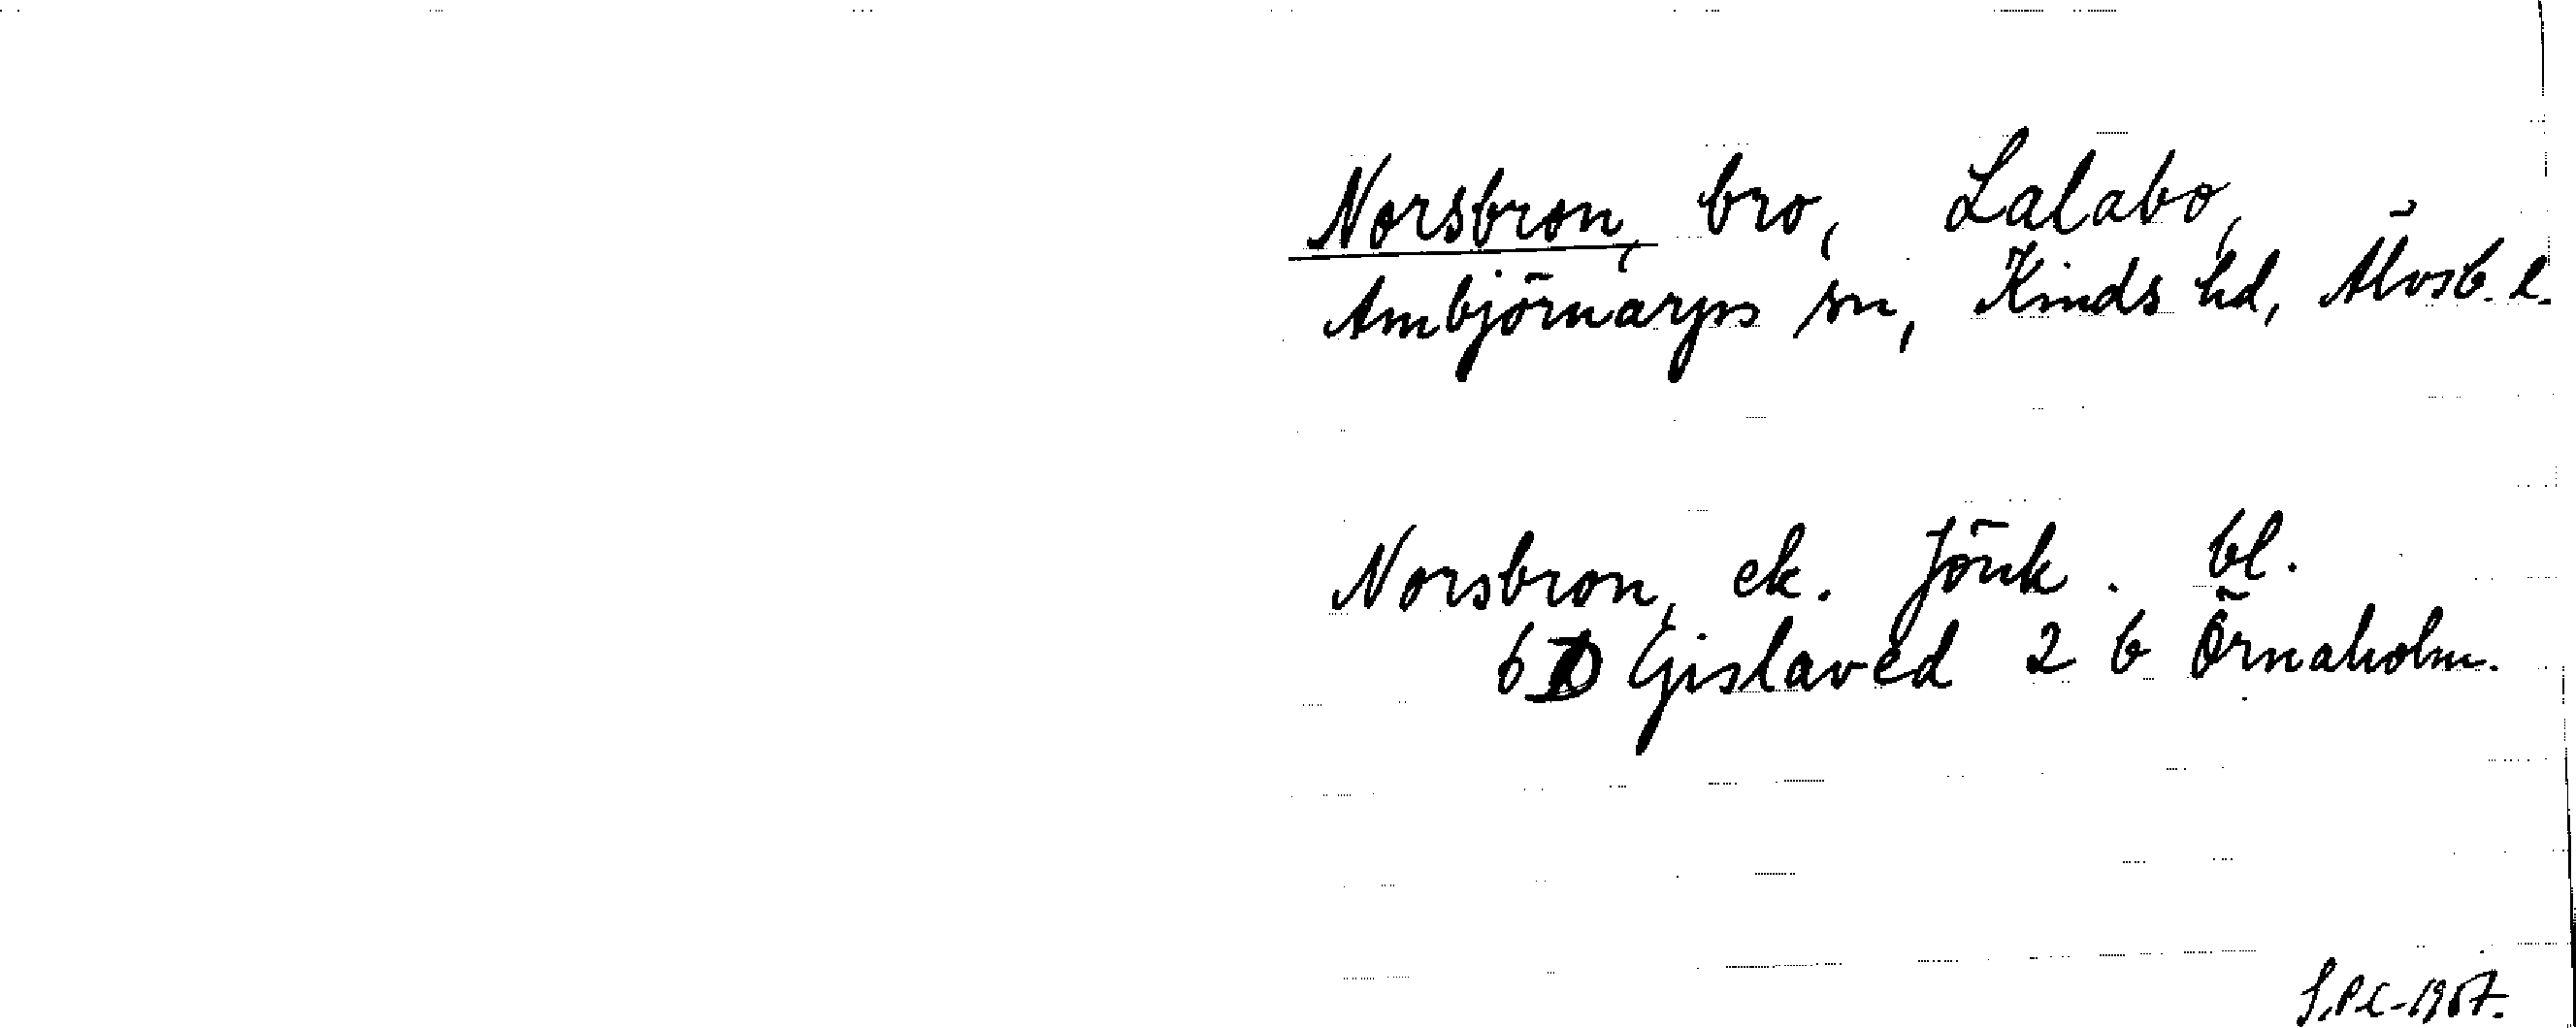 Norsbron, bro, Lalabo,
Ambjörnarps sn, Kinds hd, Älvsb. l.
Norsbron, ek. Jönk. bl.
6 D Gislaved 2 b Örnaholm.